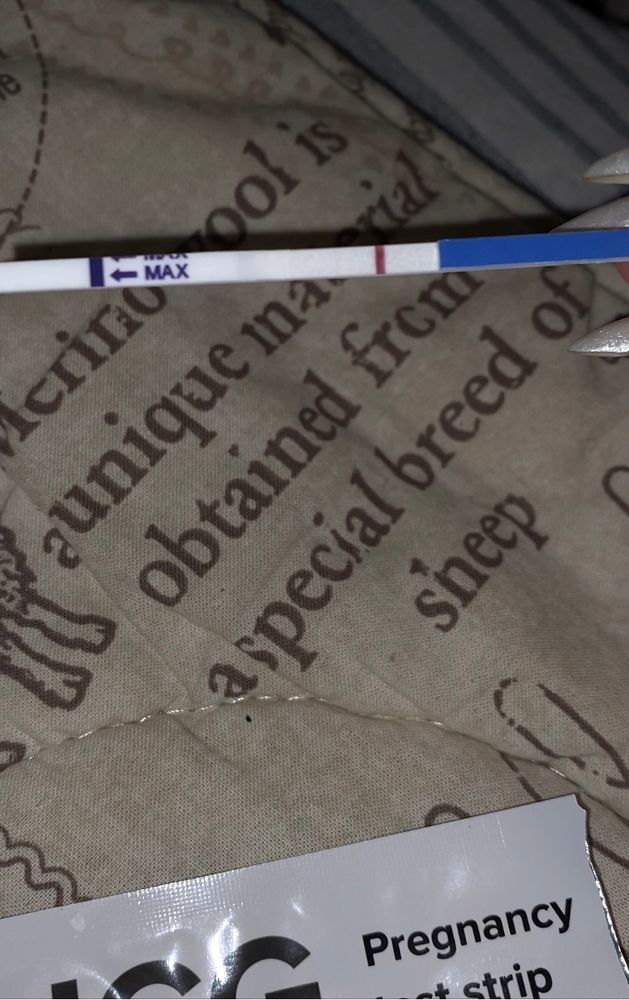 MAX
MAX
Merino wool is
a unique material
obtained from
a special breed of
sheep
HCG
Pregnancy
test strip